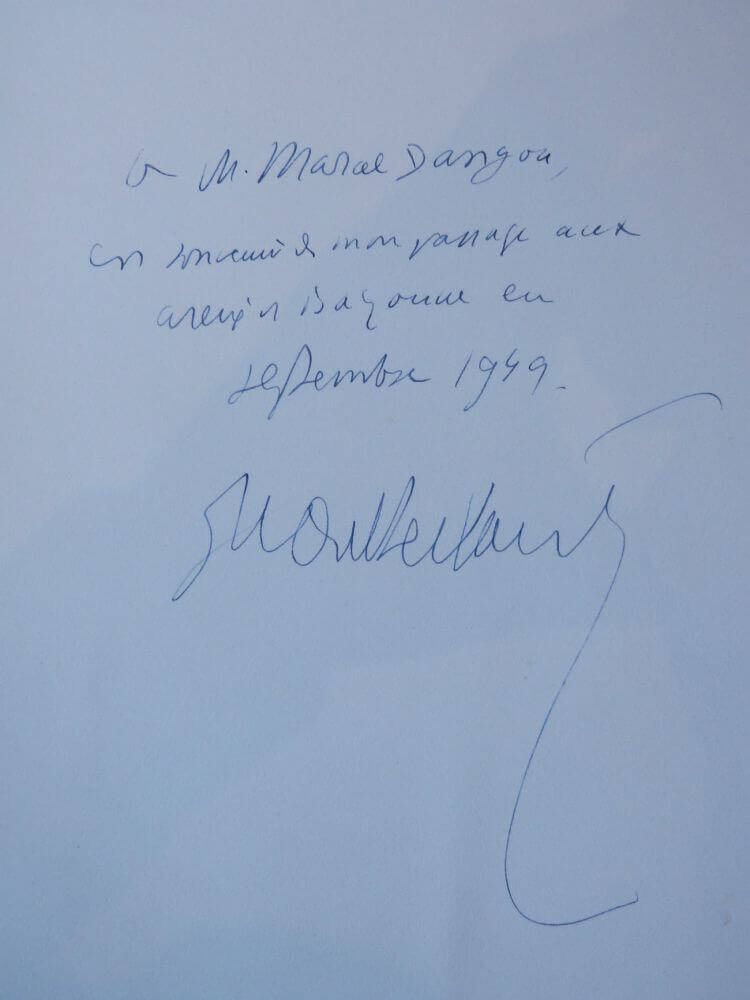 à M. Marcel Dangou,
en souvenir de mon passage aux
arènes de Bayonne en
septembre 1949.
Montherlant